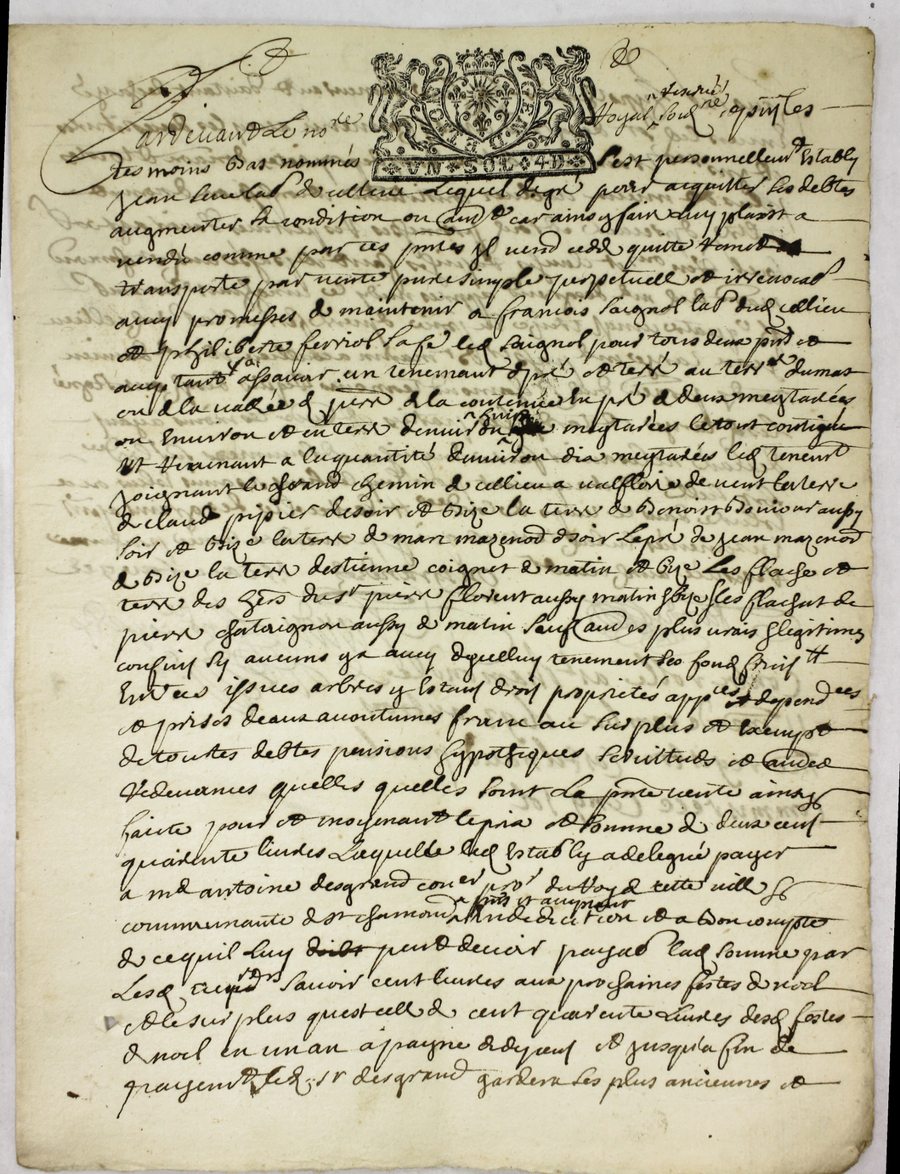 Pardevant Le no.re Royal soub.ne & psents les
tesmoins bas nommés s'est personnellem.t Estably
Jean lab.r de cellieu Lequel de gré pour acquitter ses debtes
augmenter sa condition ou aud.t car ainsy faire luy plaist a
vendu comme par ces pntes Jl vend cede quitte remet
transporte par vente pure simple perpetuelle et irrevocab.
avec promesses de maintenir a francois Saignol lab.r dud cellieu
et philiberte ferriol sa fe led Saignol pour tous deux pnt et
acceptant assavoir un tenemant de pré et terre au terr.re du mas
ou de la vallée de de la contenue En pré de deux meytarées
ou Environ et en terre denviron huit meytarées le tout contigu
Et revenant a la quantité denviron dix meytarées led tenem.t
Joignant le Grand chemin de cellieu a valflorie de vent la terre
de claude pipier de soir et bize la terre de benoist bonjour aussy
soir et bize la terre de marc mazenod de soir le pré de Jean mazenod
de bize la terre destienne coignet de matin et bize Les flache et
terre des hers du s.r pierre florent aussy matin & bize & les flachat de
pierre chataignon aussy de matin sauf aud.es plus vrais & legitimes
confins sy aucuns y a avec dycelluy tenement ses fonds fruis
Entrées issues arbres y Estans drois proprietés app.ces et depend.ces
et prises deaux acoutumées franc au surplus et exempt
de touttes debtes pensions hypotheques servitudes et aud.es
redevances quelles quelles soint La pnte vente ainsy
faitte pour et moyenant le prix et somme de deux cent
quarente livres Laquelle led Estably a delegué payer
a m.e antoine desgrand con.er pro.r du Roy de cette ville &
communauté de st chamond en deduction et a bon compte
de ce quil Luy peut devoir payab. lad somme par
Lesd savoir cent livres aux prochaines festes de noel
et le surplus quest celle de cent quarente Livres desd festes
de noel en un an a payne de depens et jusqu'a fin de
payem.t led. s.r desgrand gardera ses plus anciennes et
AN · SOL · 4D